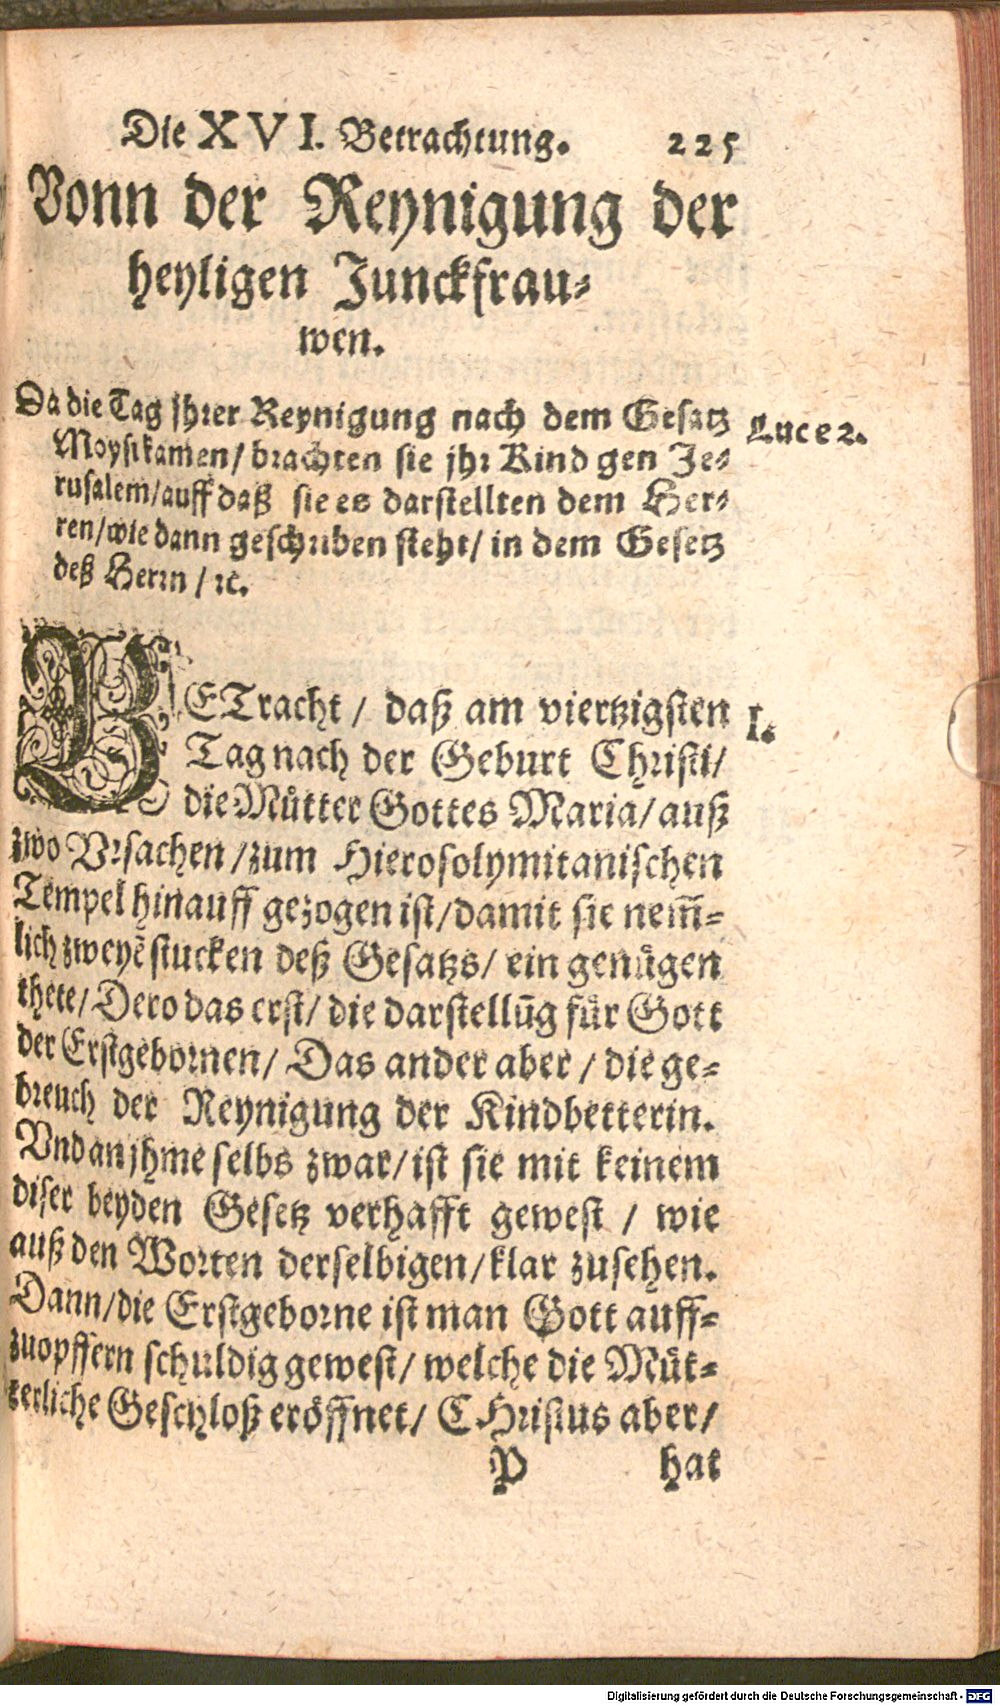 Die XVI. Betrachtung. 225
Vonn der Reynigung der
heyligen Junckfrau-
wen.
Da die Tag jhrer Reynigung nach dem Gesatz
Moysi kamen/ brachten sie jhr Kind gen Je-
rusalem/auff daß sie es darstellten dem Her-
ren/wie dann geschriben steht/ in dem Gesetz
deß Herrn / ꝛc.
Luce 2.
BETracht / daß am viertzigsten
Tag nach der Geburt Christi/
die Můtter Gottes Maria/ auß
zwo Vrsachen /zum Hierosolymitanischen
Tempel hinauff gezogen ist/damit sie nem̃-
lich zweyẽ stucken deß Gesatzs/ ein genůgen
thete/ Dero das erst/ die darstellũg für Gott
der Erstgebornen/ Das ander aber / die ge-
breuch der Reynigung der Kindbetterin.
Vnd an jhme selbs zwar/ ist sie mit keinem
diser beyden Gesetz verhafft gewest / wie
auß den Worten derselbigen/klar zusehen.
Dann/die Erstgeborne ist man Gott auff-
zuopffern schuldig gewest/ welche die Můt-
terliche Geschloß eröffnet/ CHristus aber/
I.
P hat
Digitalisierung gefördert durch die Deutsche Forschungsgemeinschaft - DFG